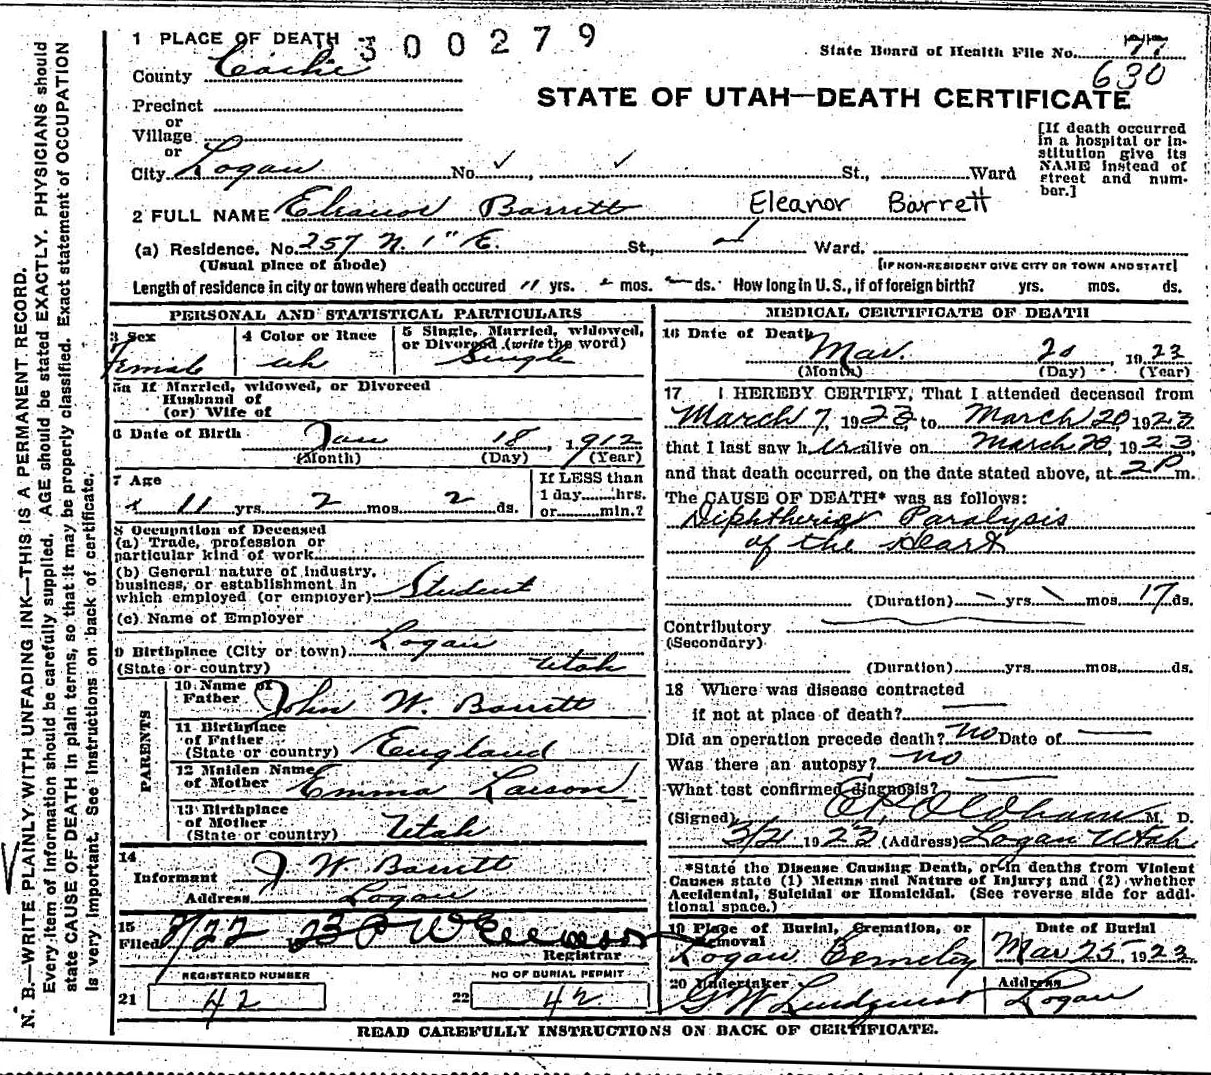 1 PLACE OF DEATH
300279
State Board of Health File No. 77
630
County Cache
STATE OF UTAH—DEATH CERTIFICATE
Precinct
or
Village
or
City Logan No. St., Ward
[If death occurred in a hospital or institution give its NAME instead of street and number.]
2 FULL NAME Eleanor Barrett Eleanor Barrett
(a) Residence. No. 257 N. 1" E. St., Ward.
(Usual place of abode) [IF NON-RESIDENT GIVE CITY OR TOWN AND STATE]
Length of residence in city or town where death occured 11 yrs. 2 mos. ds. How long in U. S., if of foreign birth? yrs. mos. ds.
PERSONAL AND STATISTICAL PARTICULARS
3 Sex
Female
4 Color or Race
wh
5 Single, Married, widowed, or Divorced (write the word)
Single
5a If Married, widowed, or Divorced
Husband of
(or) Wife of
6 Date of Birth
Jan 18, 1912
(Month) (Day) (Year)
7 Age
11 yrs. 2 mos. 2 ds.
If LESS than
1 day hrs.
or min.?
8 Occupation of Deceased
(a) Trade, profession or
particular kind of work
(b) General nature of industry,
business, or establishment in
which employed (or employer) Student
(c) Name of Employer
9 Birthplace (City or town) Logan
(State or country) Utah
PARENTS
10 Name of
Father John W. Barrett
11 Birthplace
of Father
(State or country) England
12 Maiden Name
of Mother Emma Larson
13 Birthplace
of Mother
(State or country) Utah
14
Informant J W. Barrett
Address Logan
15
Filed 3/22 1923
Registrar
REGISTERED NUMBER
21 42
NO OF BURIAL PERMIT
22 42
MEDICAL CERTIFICATE OF DEATH
16 Date of Death
Mar. 20, 1923
(Month) (Day) (Year)
17 I HEREBY CERTIFY, That I attended deceased from
March 7, 1923 to March 20, 1923
that I last saw her alive on March 20, 1923,
and that death occurred, on the date stated above, at 2 P m.
The CAUSE OF DEATH* was as follows:
Diphtheric Paralysis
of the Heart
(Duration) yrs. mos. 17 ds.
Contributory
(Secondary)
(Duration) yrs. mos. ds.
18 Where was disease contracted
if not at place of death?
Did an operation precede death? no Date of
Was there an autopsy? no
What test confirmed diagnosis?
(Signed) E. P. Oldham M. D.
3/21 1923 (Address) Logan Utah
*State the Disease Causing Death, or in deaths from Violent
Causes state (1) Means and Nature of Injury; and (2) whether
Accidental, Suicidal or Homicidal. (See reverse side for addi-
tional space.)
19 Place of Burial, Cremation, or
Removal
Logan Cemetery
Date of Burial
Mar 25 1923
20 Undertaker
G W Lindquist
Address
Logan
READ CAREFULLY INSTRUCTIONS ON BACK OF CERTIFICATE.
N. B.—WRITE PLAINLY WITH UNFADING INK—THIS IS A PERMANENT RECORD.
Every item of information should be carefully supplied. AGE should be stated EXACTLY. PHYSICIANS should
state CAUSE OF DEATH in plain terms, so that it may be properly classified. Exact statement of OCCUPATION
is very important. See Instructions on back of certificate.